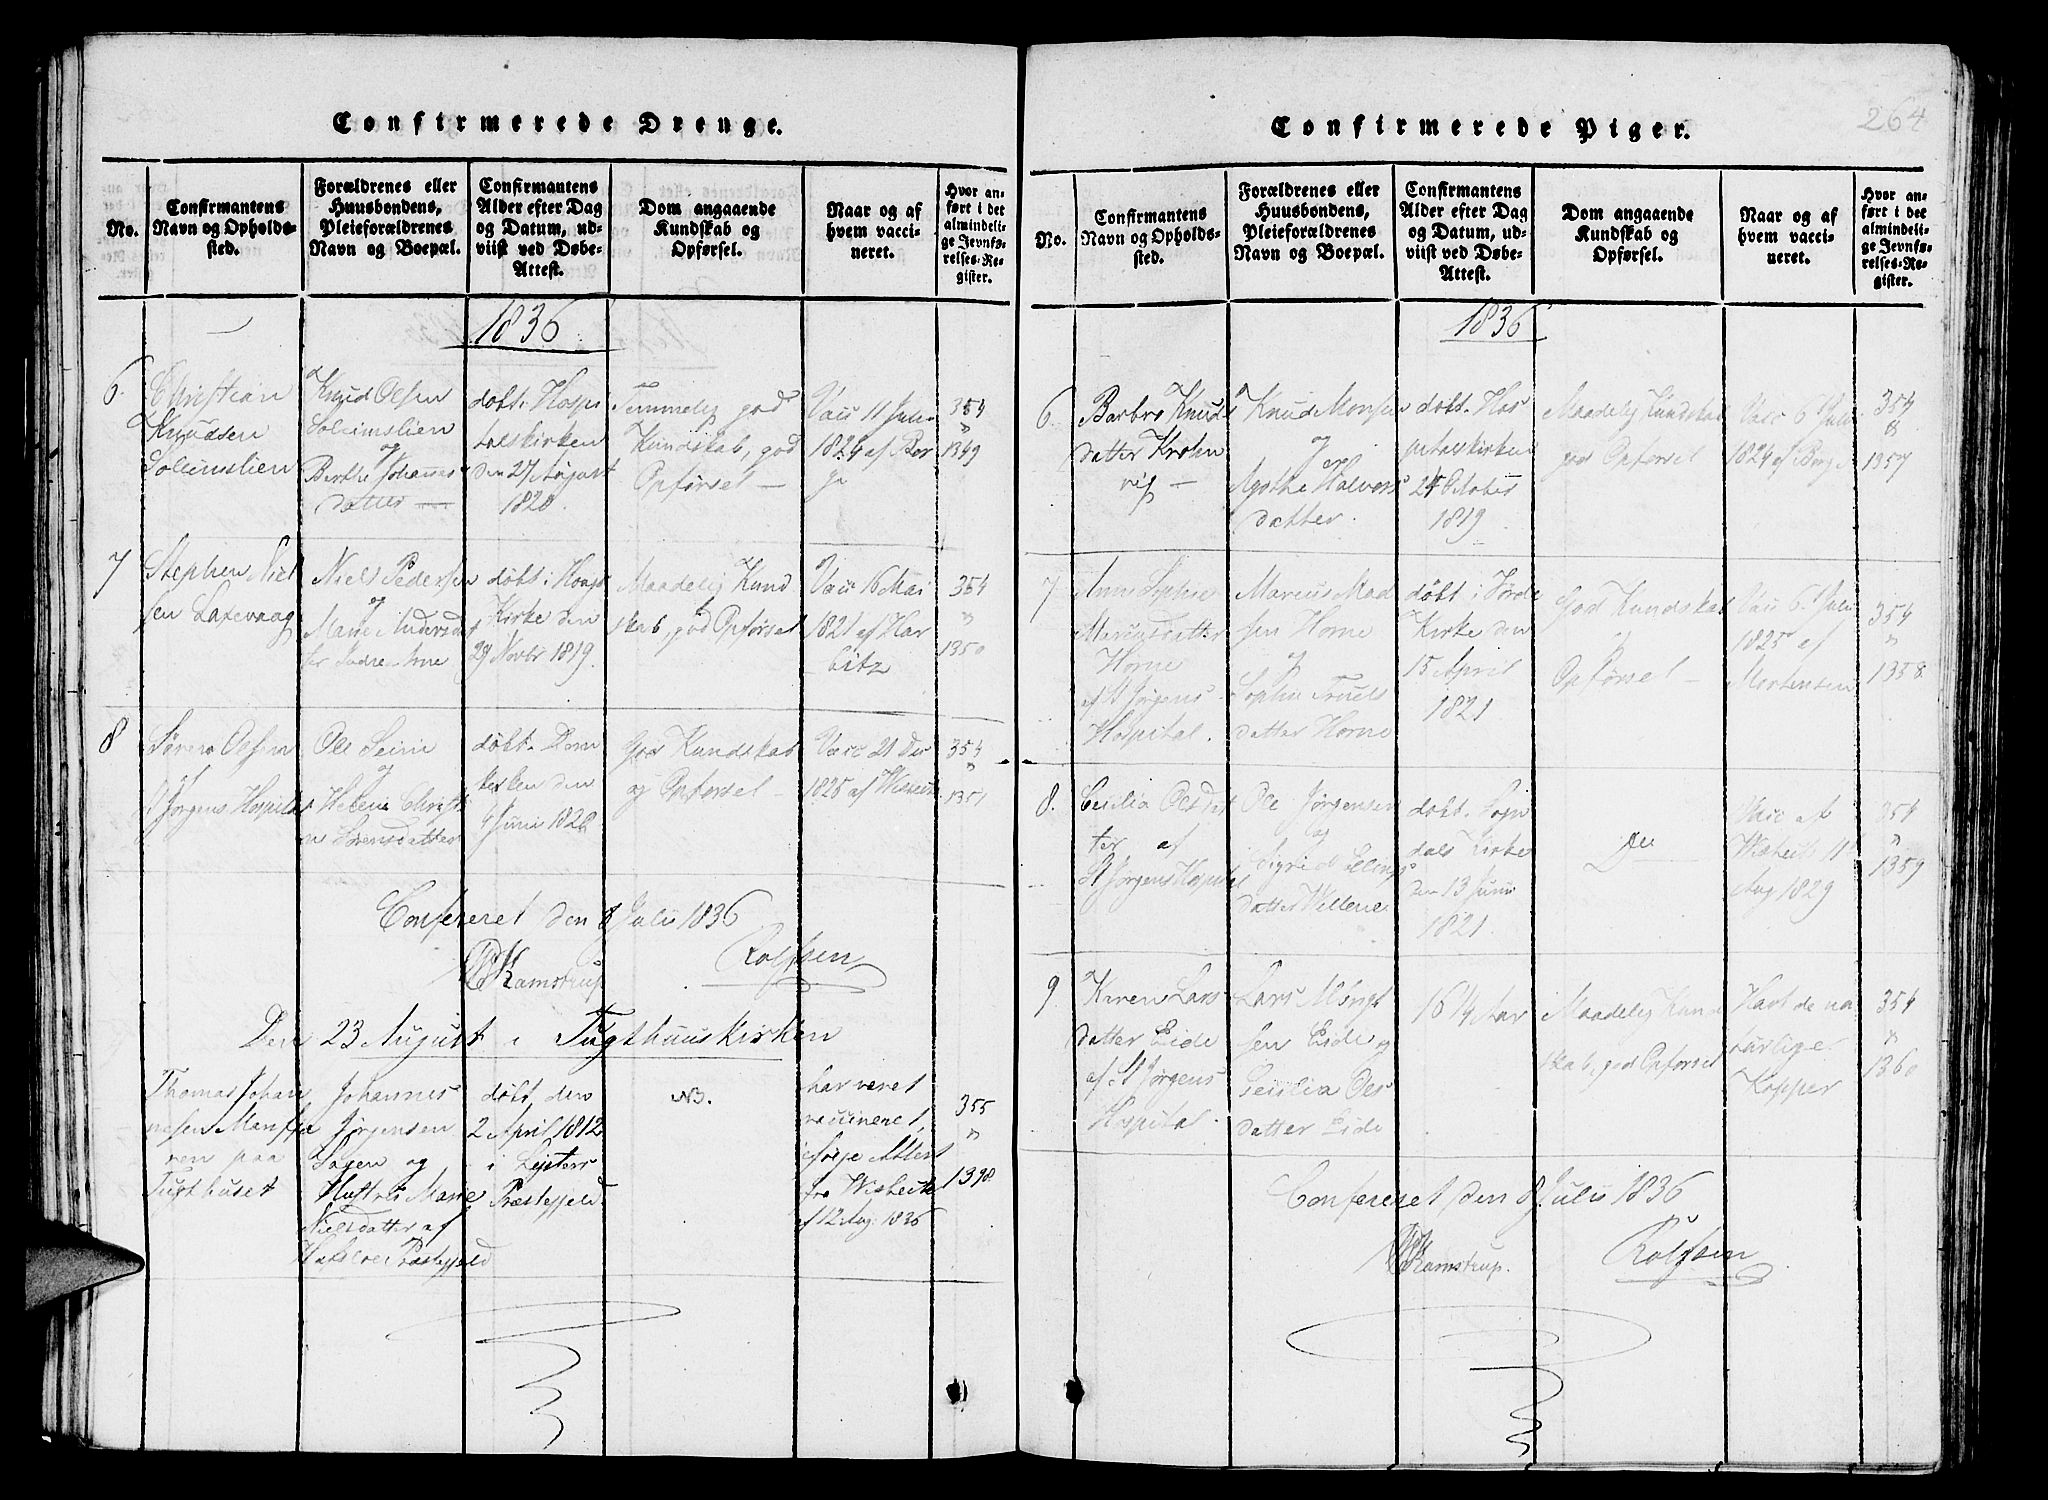 Confirmerede Drenge.
No.
Confirmantens
Navn og Opholds-
sted.
Forældrenes eller
Huusbondens,
Pleieforældrenes
Navn og Boepæl.
Confirmantens
Alder efter Dag
og Datum, ud-
viist ved Døbe-
Attest.
Dom angaaende
Kundskab og
Opførsel.
Naar og af
hvem vacci-
neret.
Hvor an-
ført i det
almindeli-
ge Jevnfø-
relses-Re-
gister.
1836
6.
Christian
Knudsen
Knud Olsen
og
Berthe Johannes
datter
døbt i Hospi
talskirken
den 27 August
1820
Temmelig god
Kundskab, god
Opførsel —
Vacc 11 Juli
1824 af Bor
ge
354
"
1349
7
Stephen Niel
sen Laxevaag
Niels Pedersen
og
Marie Andersdat
ter Indre Arne
døbt i Hospt
Kirke den
29 Novbr 1819.
Maadelig Kund
skab, god Opførsel
Vacc 16 Mai
1821 af Har
bitz
354
"
1350
8
Søren Olsen
St Jørgens Hospital
Ole Seim
og
Helene Christi
ne Sørensdatter
døbt i Dom
kirken den
4 Juni 1820
God Kundskab
og Opførsel —
Vacc 21 Dec
1825 af Wisbech
354
"
1351
Confereret den 8 Julii 1836
Kamstrup
Rolfsen
Den 23 August i Tugthuuskirken
Thomas Johan
nesen Manffa
ren paa
Tugthuset
Johannes
Jørgensen
Sagen og
Marie
Nielsdatter af
Præstegjeld
døbt den
2 April 1812
i Lysters
Præstegjeld.
NB.
har været
vaccineret,
ifølge Attest
fra Wisbech
af 12 Aug. 1836
355
"
1398
264
Confirmerede Piger.
No.
Confirmantens
Navn og Opholds-
sted.
Forældrenes eller
Huusbondens,
Pleieforældrenes
Navn og Boepæl.
Confirmantens
Alder efter Dag
og Datum, ud-
viist ved Døbe-
Attest.
Dom angaaende
Kundskab og
Opførsel.
Naar og af
hvem vacci-
neret.
Hvor an-
ført i det
almindeli-
ge Jevnfø-
relses-Re-
gister.
1836
6
Barbro Knuds
datter Krohn
vig —
Knud Monsen
og
Agathe Halvors
datter.
døbt i Hos
pitalskirken
24 October
1819
Maadelig Kundskab
god Opførsel
Vacc 6 Juli
1824 af Borge
354
"
1357
7
Anne Sophie
Mariusdatter
Horne
af St Jørgens
Hospital.
Marius Mad
sen Horne
og
Sophie Truels
datter Horne
døbt i Førde
Kirke den
15 April
1821
God Kundskab
og
Opførsel —
Vacc 6. Juli
1825 af
Mortensen
354
"
1358
8.
Cecilia Olsdat
ter af
St Jørgens Hospital
Ole Jørgensen
og
Sigrid Ellings
datter Wellene
døbt i Sogn
dals Kirke
den 13 Juni
1821
Do
Vacc af
Wisbech 11
Aug 1829
354
"
1359
9
Karen Lars
datter Eide
af St Jørgens
Hospital.
Lars Albrigt
sen Eide og
Cecilia Ols
datter Eide
16 1/4 Aar
Maadelig Kund
skab, god Opførsel
Havt de na
turlige
Kopper
354
"
1360
Confereret den 8 Julii 1836
Kamstrup.
Rolfsen